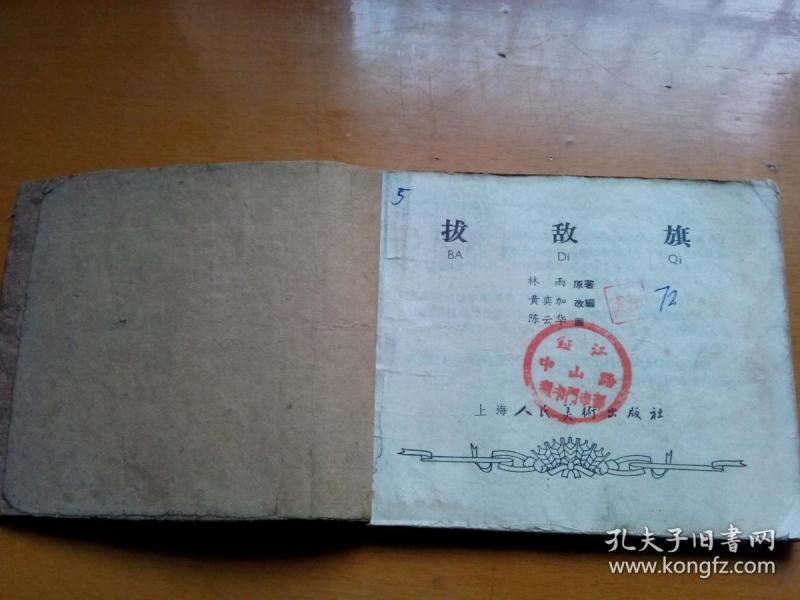 5
拔 敌 旗
BA Di Qi
林 雨 原著
黄奕加 改編
陈云华 画
72
江
中山路
門市部
上海人民美術出版社
孔夫子旧书网
www.kongfz.com